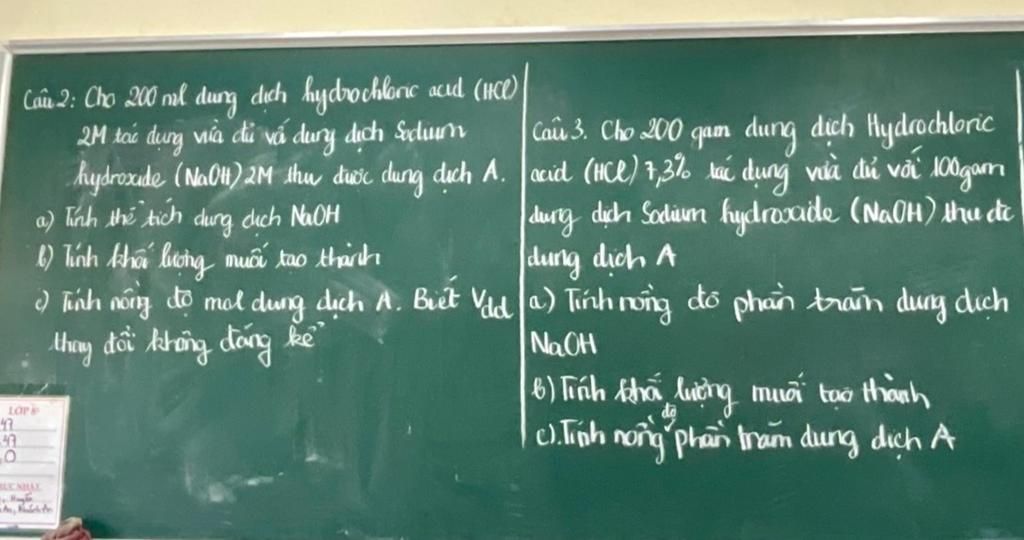 Câu 2: Cho 200 ml dung dịch hydrochloric acid (HCl)
2M tác dụng vừa đủ vố dung dịch Sodium
hydroxide (NaOH) 2M thu được dung dịch A.
a) Tính thể tích dung dịch NaOH
b) Tính khối lượng muối tạo thành
c) Tính nồng độ mol dung dịch A. Biết Vdd
thay đổi không đáng kể
Câu 3. Cho 200 gam dung dịch Hydrochloric
acid (HCl) 7,3% tác dụng vừa đủ với 100gam
dung dịch Sodium hydroxide (NaOH) thu đc
dung dịch A
a) Tính nồng độ phần trăm dung dịch
NaOH
b) Tính khối lượng muối tạo thành
c). Tính nồng độ phần trăm dung dịch A
LỚP 8
47
47
0